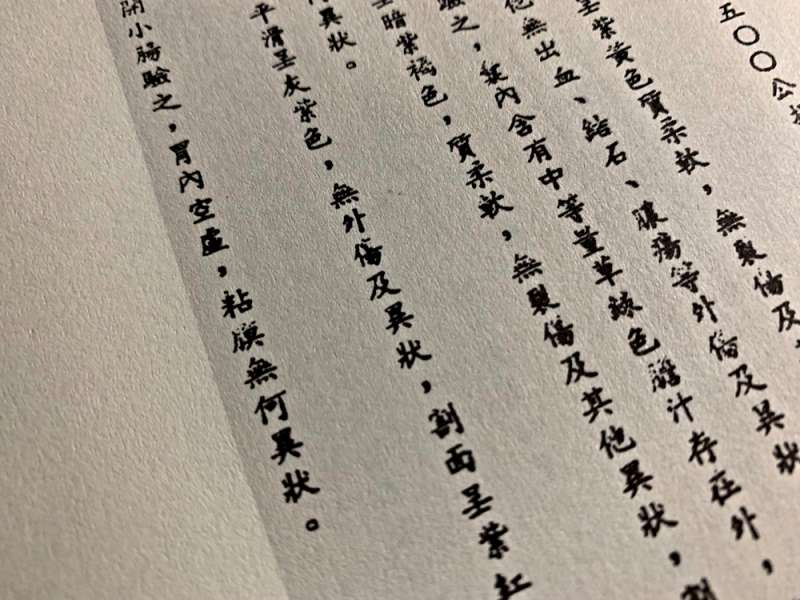 五〇〇公
呈紫黃色質柔軟,無裂傷及
他無出血、結石、膿瘍等外傷及異狀
驗之,囊內含有中等量草綠色膽汁存在外,
呈暗紫褐色,質柔軟,無裂傷及其他異狀,割
何異狀。
平滑呈灰紫色,無外傷及異狀,割面呈紫紅
開小腸驗之,胃內空虛,粘膜無何異狀。